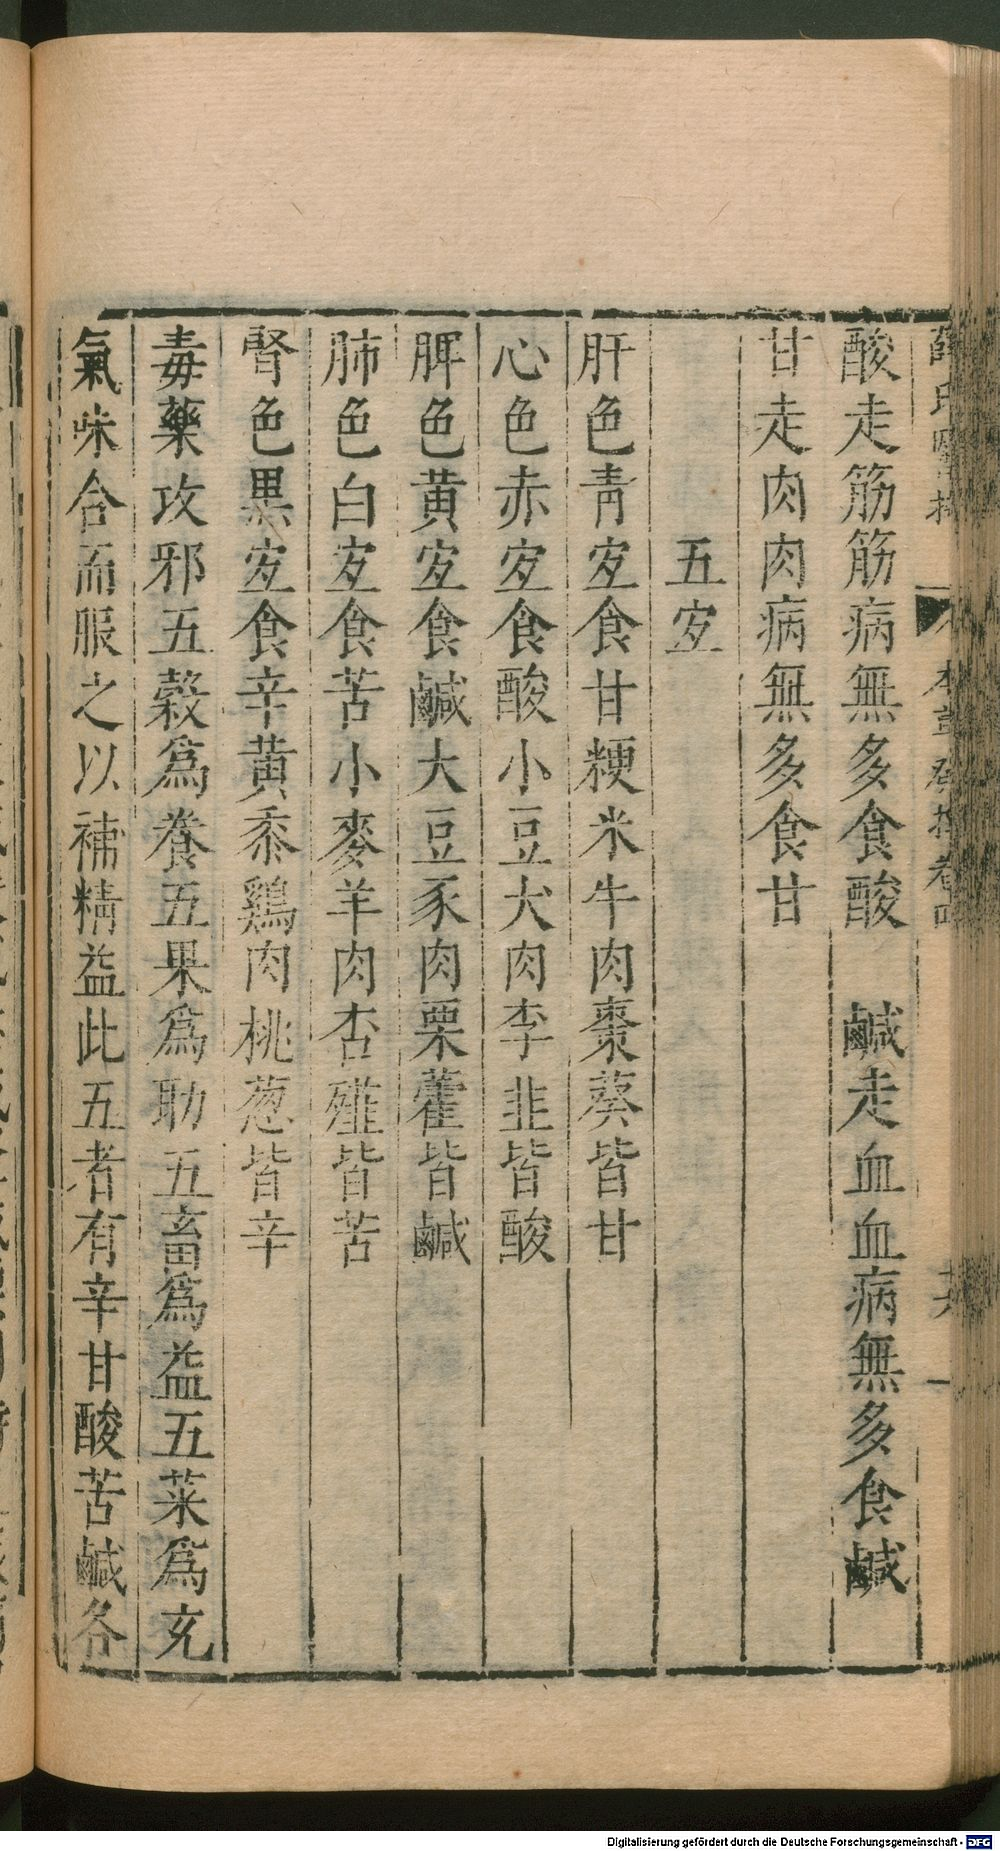 薛氏醫按 本草發揮卷四 十六
酸走筋筋病無多食酸　鹹走血血病無多食鹹
甘走肉肉病無多食甘
五宐
肝色青宐食甘粳米牛肉棗葵皆甘
心色赤宐食酸小豆犬肉李韭皆酸
脾色黄宐食鹹大豆豕肉栗藿皆鹹
肺色白宐食苦小麥羊肉杏薤皆苦
腎色黒宐食辛黄黍鷄肉桃葱皆辛
毒藥攻邪五穀爲養五果爲助五畜爲益五菜爲充
氣味合而服之以補精益此五者有辛甘酸苦鹹各
Digitalisierung gefördert durch die Deutsche Forschungsgemeinschaft - DFG